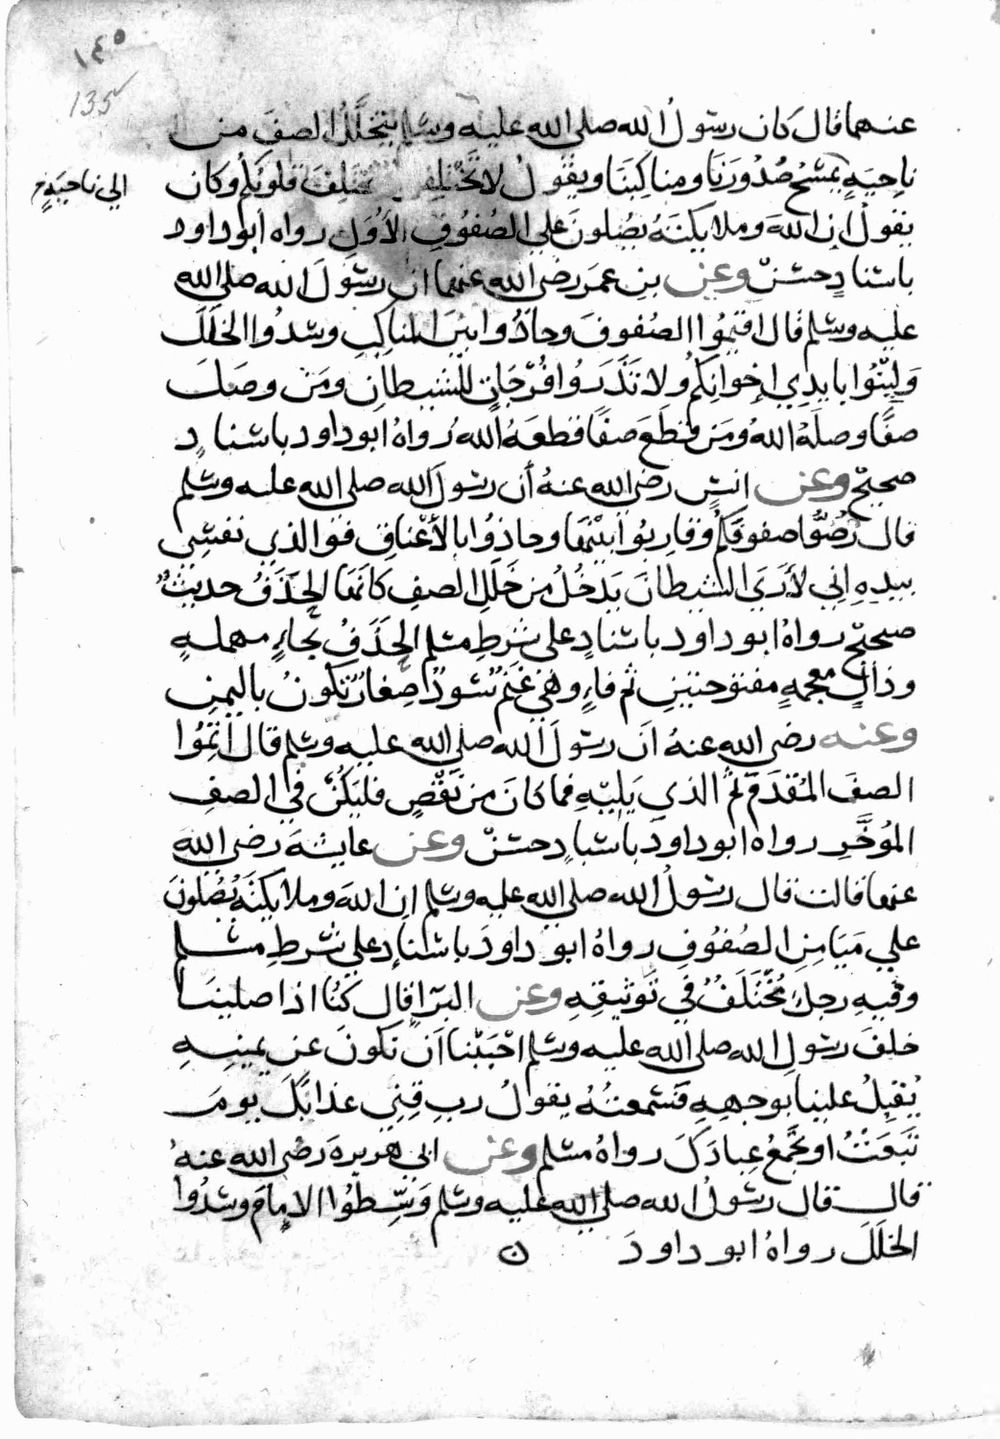 ١٤٥
135
عنهما قال كان رسول الله صلى الله عليه وسلم يتخلل الصف من
ناحيةٍ يمسح صُدُورَنا ومناكبنا ويقول لا تختلفوا فتختلف قلوبكم وكان
الى ناحيةٍ صح
يقول ان الله وملايكته يصلون على الصفوف الأُوَلِ رواه ابو داود
باسنادٍ حسنٍ وعن بن عمر رضي الله عنهما ان رسول الله صلى الله
عليه وسلم قال اقيموا الصفوف وحاذوا بين المناكب وسدوا الخلل
ولينوا بايدي إخوانكم ولا تذروا فرجاتٍ للشيطان ومن وصل
صفًا وصله الله ومن قطع صفًا قطعه الله رواه ابو داود باسنادٍ
صحيح وعن انسٍ رضي الله عنه أن رسول الله صلى الله عليه وسلم
قال رُصُّوا صفوفكم وقاربوا بينها وحاذوا بالأعناق فو الذي نفسي
بيده إني لأرى الشيطان يدخل من خلل الصف كأنها الحَذَفُ حديثٌ
صحيح رواه ابو داود باسنادٍ على شرط مسلم الحَذَفُ بحاءٍ مهملةٍ
وذالٍ معجمةٍ مفتوحتين ثم فاءٍ وهي غنم سُودٌ صغارٌ تكون باليمن
وعنه رضي الله عنه أن رسول الله صلى الله عليه وسلم قال اتموا
الصف المُقدَم ثم الذي يليه فما كان من نقصٍ فليكن في الصف
المؤخَّرِ رواه ابو داود باسنادٍ حسنٍ وعن عايشة رضي الله
عنها قالت قال رسول الله صلى الله عليه وسلم ان الله وملايكته يصلون
على ميامن الصفوف رواه ابو داود باسنادٍ على شرط مسلم
وفيه رجلٌ مُختَلَفٌ في توثيقه وعن البرآ قال كنا اذا صلينا
خلف رسول الله صلى الله عليه وسلم احببنا أن نكون عن يمينه
يُقبِلُ علينا بوجهه فسمعته يقول رب قني عذابك يوم
تبعث او تجمع عبادك رواه مسلم وعن ابي هريرة رضي الله عنه
قال قال رسول الله صلى الله عليه وسلم وَسِّطوا الإمام وسدوا
الخلل رواه ابو داود ن